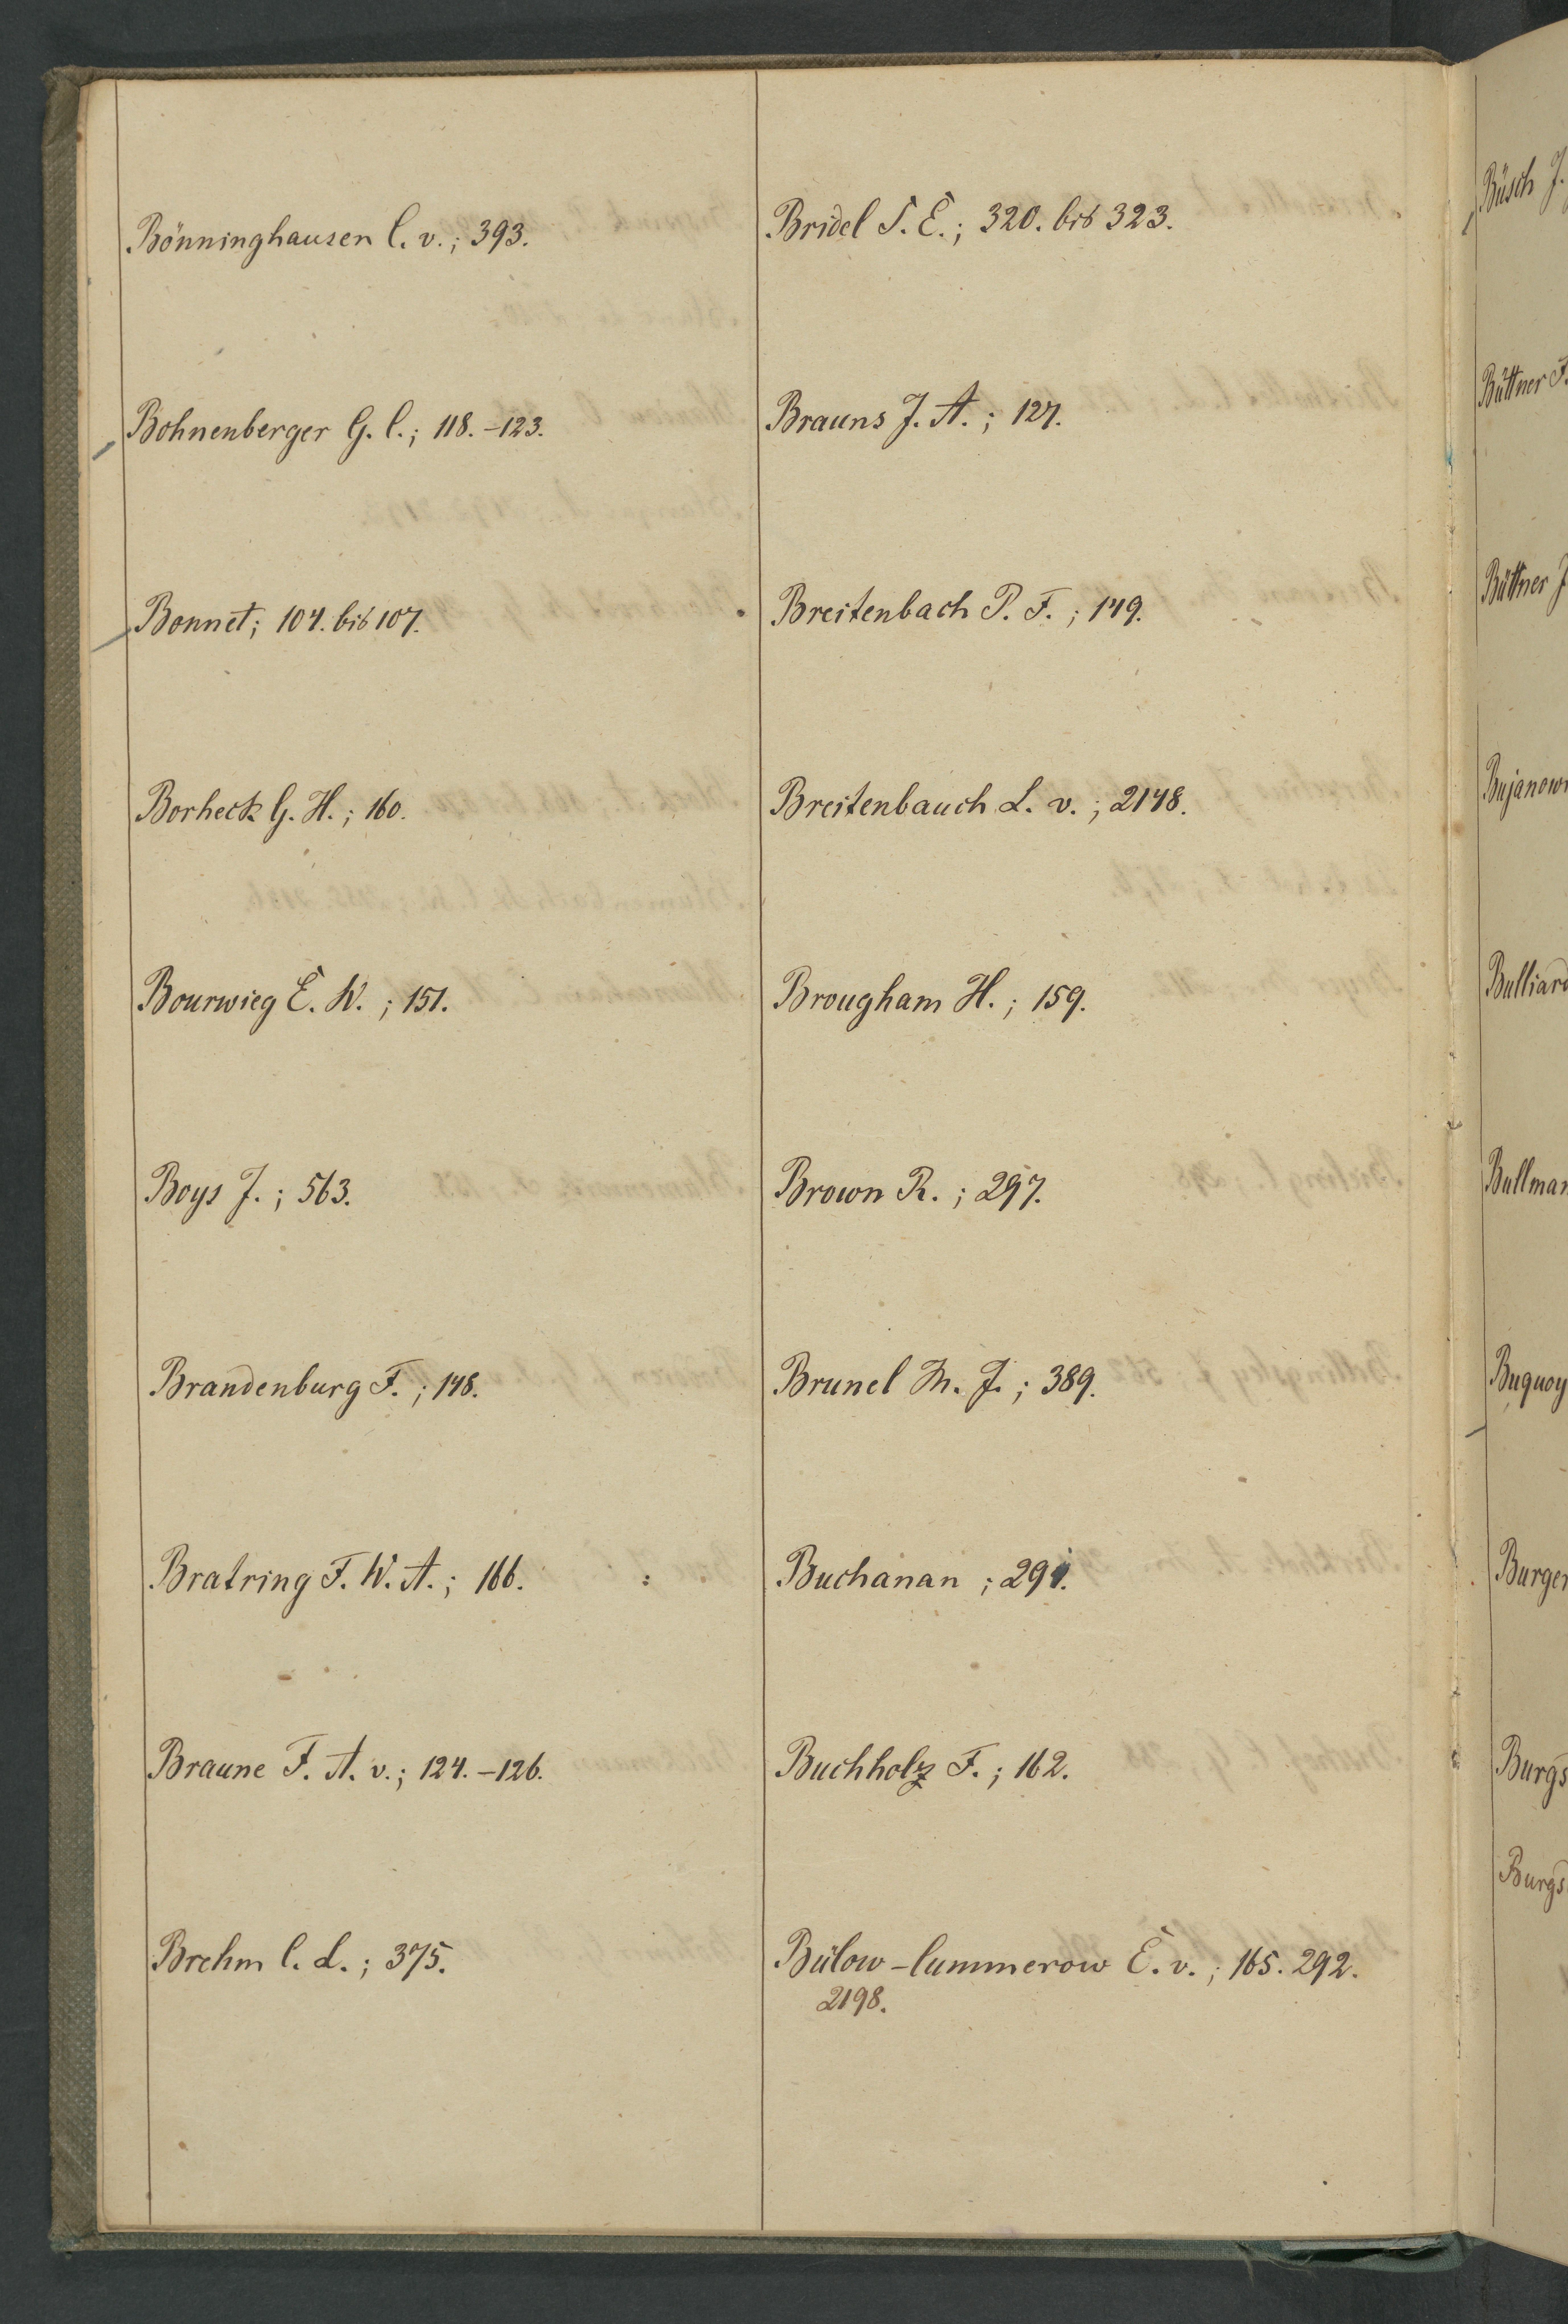 Bönninghausen C. v.; 393.
Bohnenberger G. C.; 118.-123.
Bonnet; 104. bis 107.
Borheck G. H.; 160.
Bourwieg E. W.; 151.
Boys J.; 563.
Brandenburg F.; 148.
Bratring F. W. A.; 166.
Braune F. A. v.; 124.-126.
Brehm C. L.; 375.
Bridel S. E.; 320. bis 323.
Brauns J. A.; 127.
Breitenbach P. F.; 149.
Breitenbauch L. v.; 2148.
Brougham H.; 159.
Brown R.; 297.
Brunel M. J.; 389.
Buchanan; 291.
Buchholz F.; 162.
Bülow-Cummerow E. v.; 165. 292.
2198.
Büsch J.
Büttner F.
Büttner J
Bujanow
Bulliard
Bullman
Buquoy
Burger
Burgs
Burgs